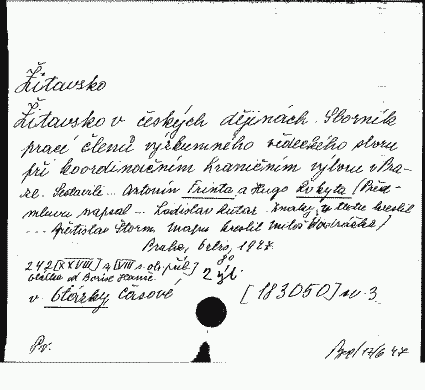 Žitavsko
Žitavsko v českých dějinách. Sborník
prací členů výzkumného vědeckého sboru
při koordinačním hraničním výboru v Pra-
ze. Sestavili... Antonín Frinta a Hugo Rokyta (Před-
mluvu napsal... Ladislav Kutar. Značky v textu kreslil
... Břetislav Štorm mapu kreslil Miloš Vondráček)
Praha, Orbis, 1947.
8°
242 [XXVIII] a [VIII] s ob. příl.
2 výt.
obálka od
v. Otázky časové
[183050] sv. 3
Pv.
17/6 47